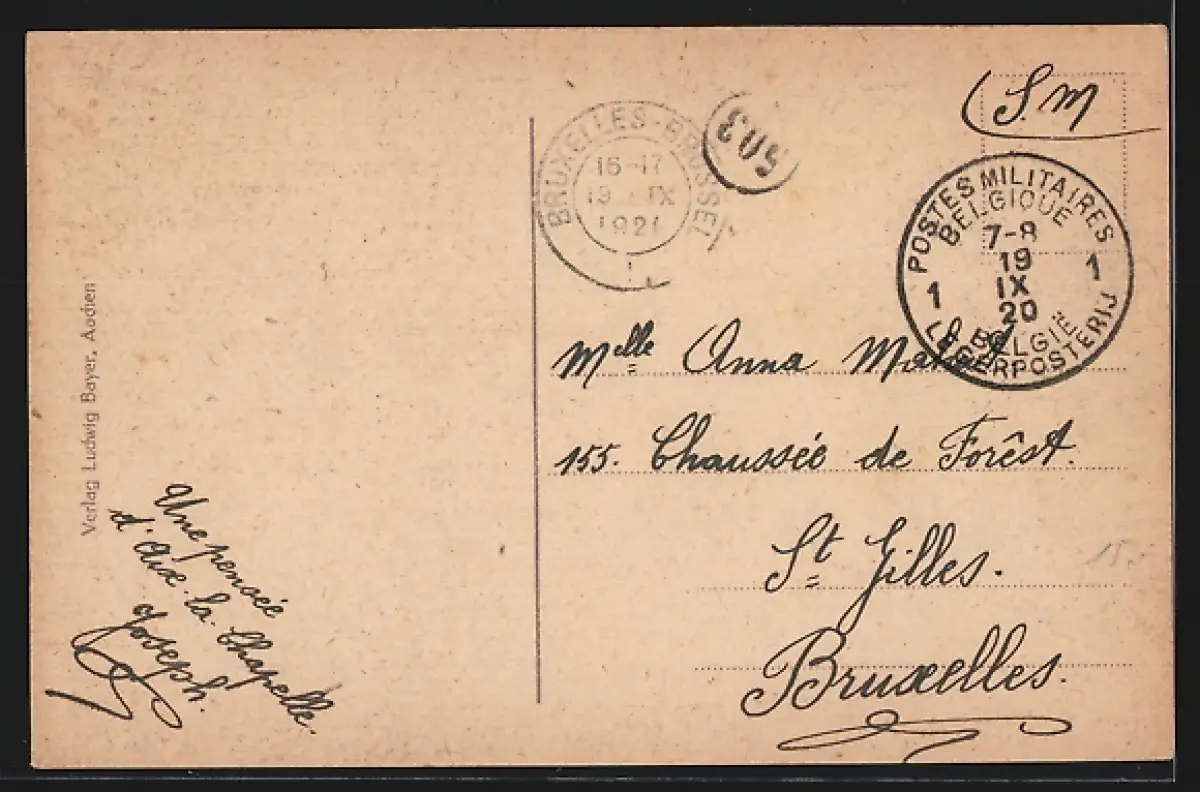 Verlag Ludwig Bayer, Aachen
Une pensée
d'Aix-la-Chapelle.
Joseph.
BRUXELLES-BRUSSEL
16-17
19 IX
192
1
503
S.M
POSTES MILITAIRES
BELGIQUE
7-8
1 19 1
IX
20
BELGIË
LEGERPOSTERIJ
Melle Anna
155. Chaussée de Forêst.
St Gilles.
Bruxelles.
15.-